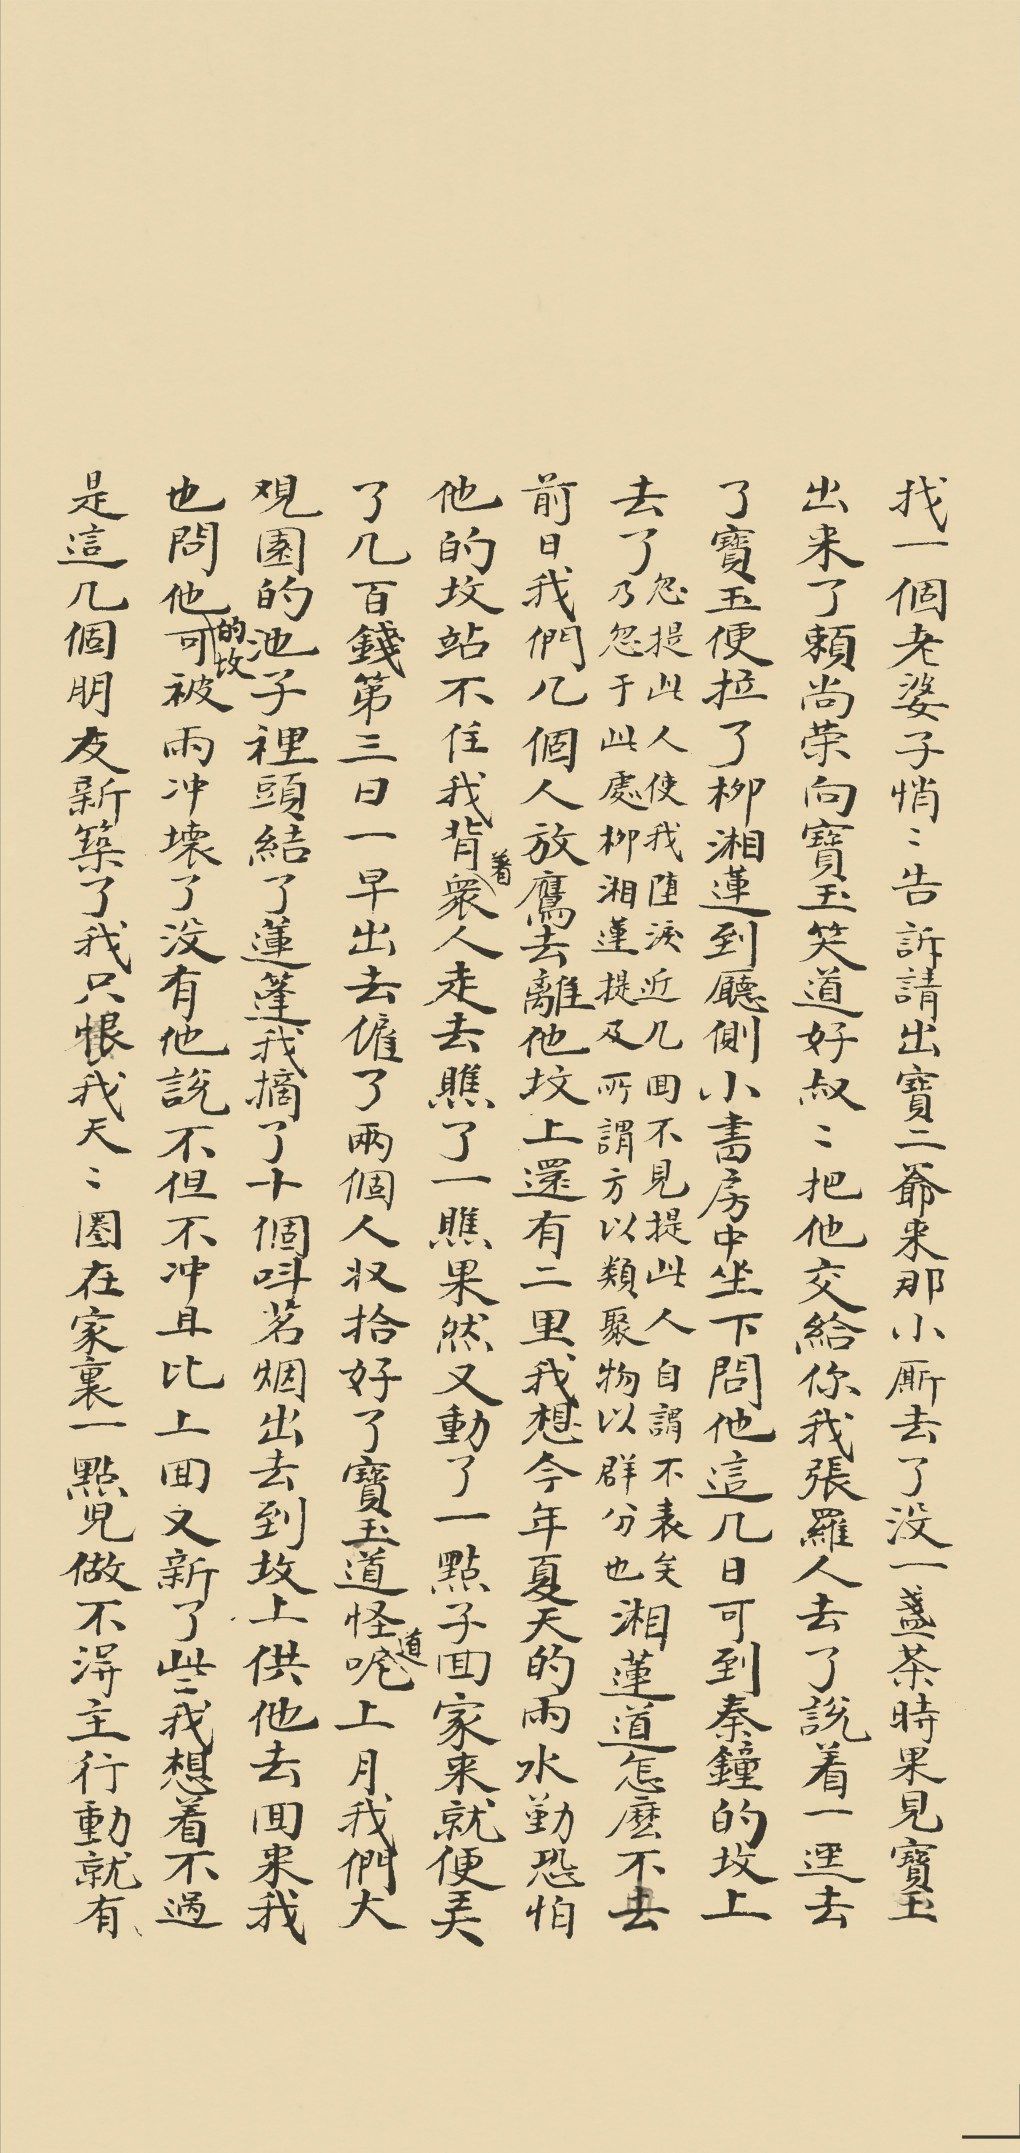 找一個老婆子悄〻告訴請出寶二爺来那小厮去了没一盞茶時果見寶玉
出来了賴尚荣向寶玉笑道好叔〻把他交给你我張羅人去了說着一逕去
了寶玉便拉了柳湘蓮到廳側小書房中坐下問他這几日可到秦鐘的坟上
去了
忽提此人使我堕淚近几回不見提此人自謂不表矣
乃忽于此處柳湘蓮提及所謂方以類聚物以群分也
湘蓮道怎麽不去
前日我們几個人放鷹去離他坟上還有二里我想今年夏天的雨水勤恐怕
他的坟站不住我背着衆人走去瞧了一瞧果然又動了一點子回家来就便弄
了几百錢第三日一早出去僱了兩個人收拾好了寶玉道怪道呢上月我們大
观園的池子裡頭結了蓮蓬我摘了十個呌茗烟出去到坟上供他去回来我
也問他的坟可被雨冲壊了没有他說不但不冲且比上回又新了些〻我想着不過
是這几個朋友新築了我只恨我天〻圈在家裏一點兒做不淂主行動就有